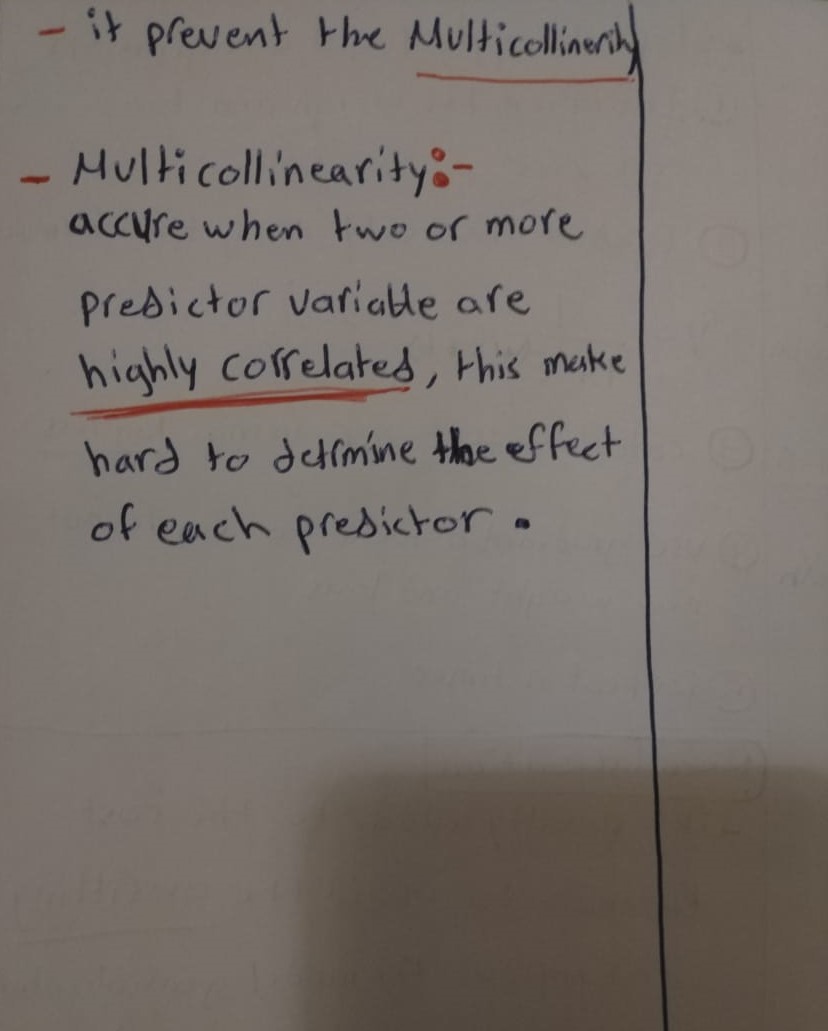 - it prevent the Multicollinerity
- Multicollinearity:-
accure when two or more
predictor variable are
highly correlated, this make
hard to detrmine the effect
of each predictor.